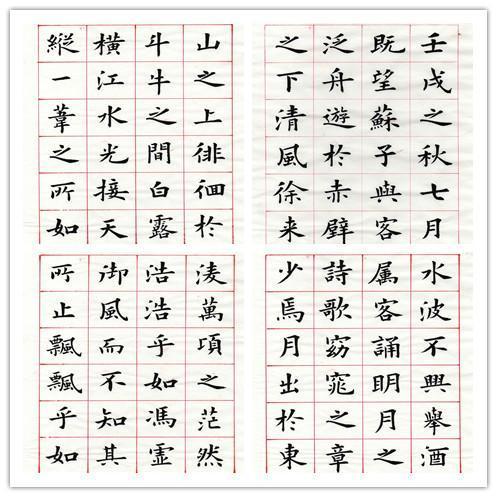 壬戌之秋七月
既望蘇子與客
泛舟遊於赤壁
之下清風徐来
水波不興舉酒
属客誦明月之
詩歌窈窕之章
少焉月出於東
山之上徘徊於
斗牛之間白露
橫江水光接天
縱一葦之所如
淩萬頃之茫然
浩浩乎如馮虛
御風而不知其
所止飄飄乎如